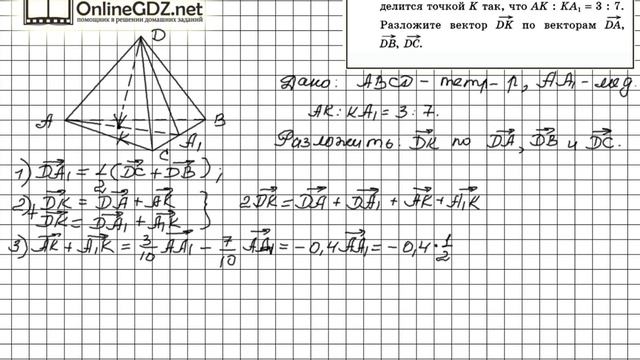 OnlineGDZ.net
помощник в решении домашних заданий
делится точкой K так, что AK : KA₁ = 3 : 7.
Разложите вектор DK→ по векторам DA→,
DB→, DC→.
D
A
B
K
A₁
C
Дано: ABCD – тетр-р, AA₁ – мед.
AK : KA₁ = 3 : 7.
Разложить: DK→ по DA→, DB→ и DC→.
1) DA₁→ = 1/2 (DC→ + DB→);
2) DK→ = DA→ + AK→
+ DK→ = DA₁→ + A₁K→ } 2DK→ = DA→ + DA₁→ + AK→ + A₁K→
3) AK→ + A₁K→ = 3/10 AA₁→ – 7/10 AA₁→ = – 0,4 AA₁→ = – 0,4 · 1/2